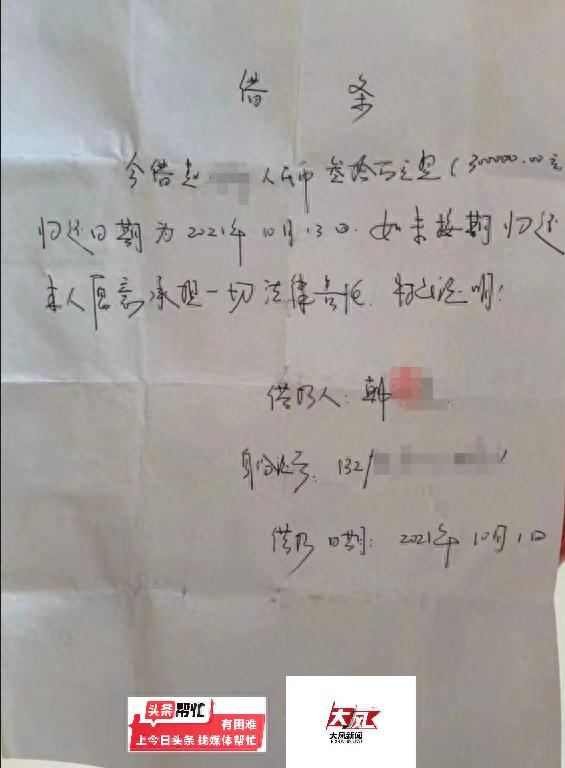 借 条
今借赵 人民币叁拾万元整(300000.00元
归还日期为2021年10月13日.如未按期归还
本人愿意承担一切法律责任.特此证明!
借款人:韩
身份证号:132
借款日期:2021年10月1日
头条帮忙
有困难
上今日头条 找媒体帮忙
大风
大风新闻